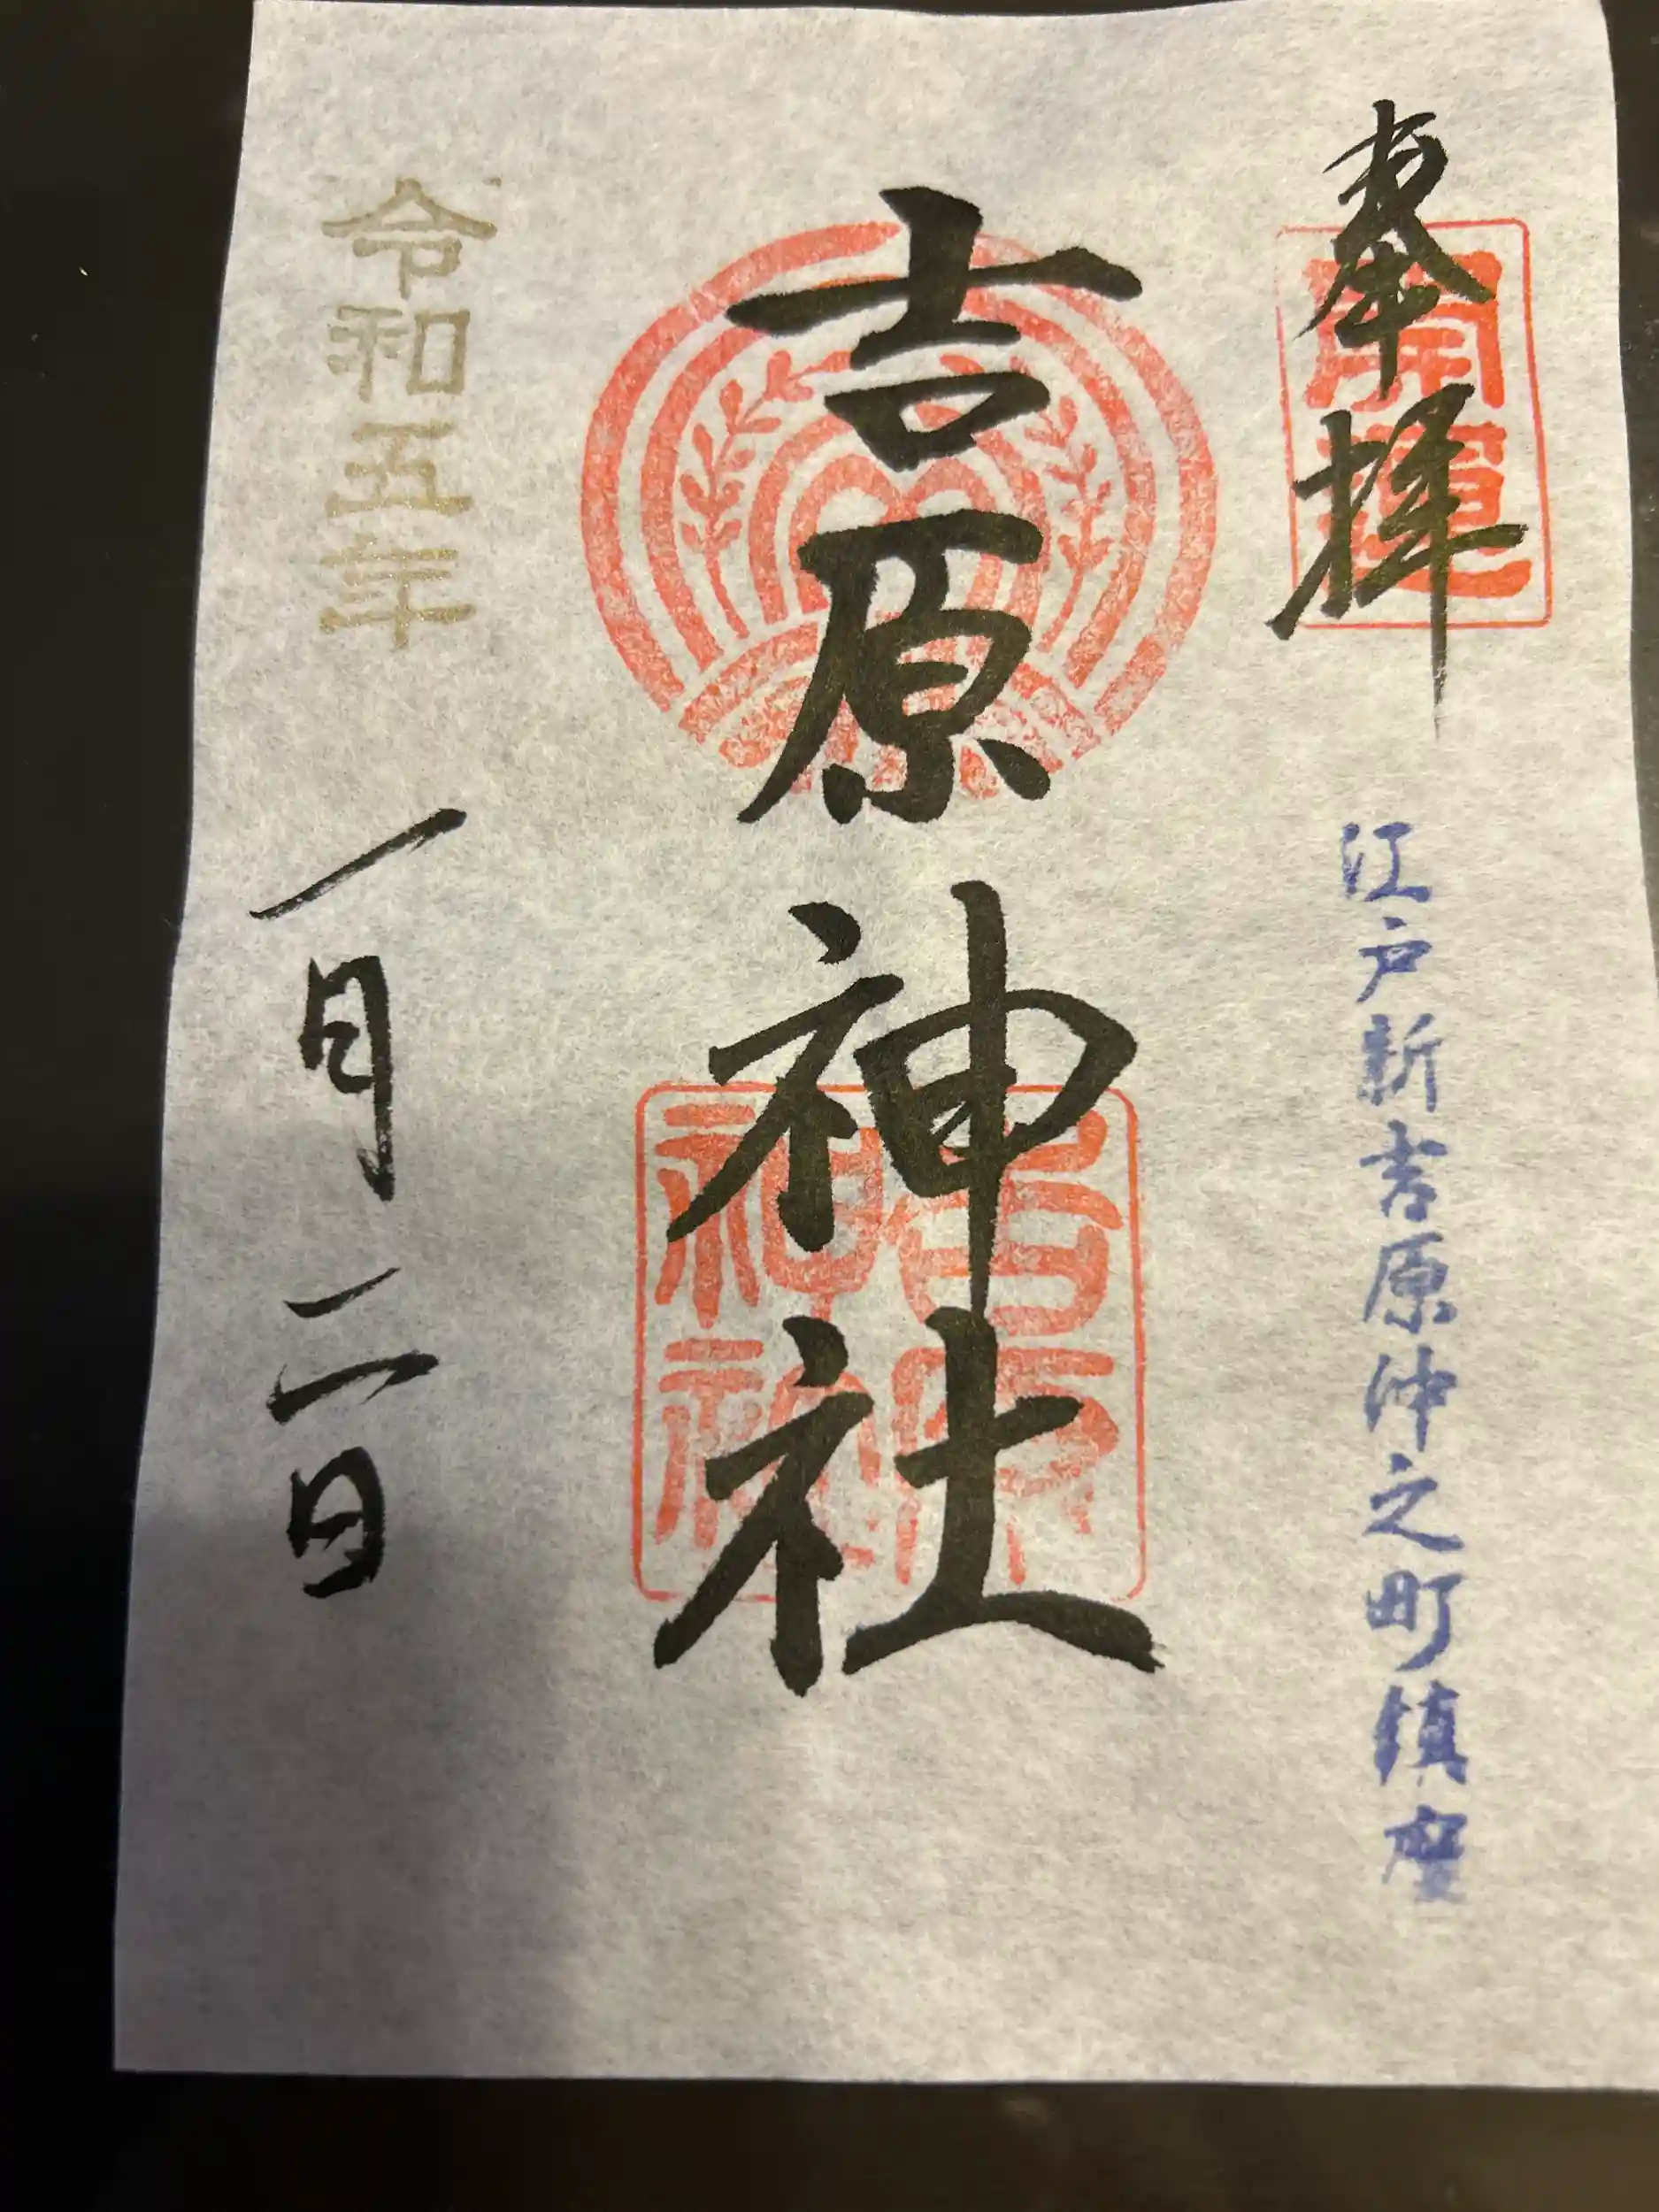 奉拝
開運
江戸新吉原沖之町鎮座
吉原神社
吉原
神社
令和五年
一月二日